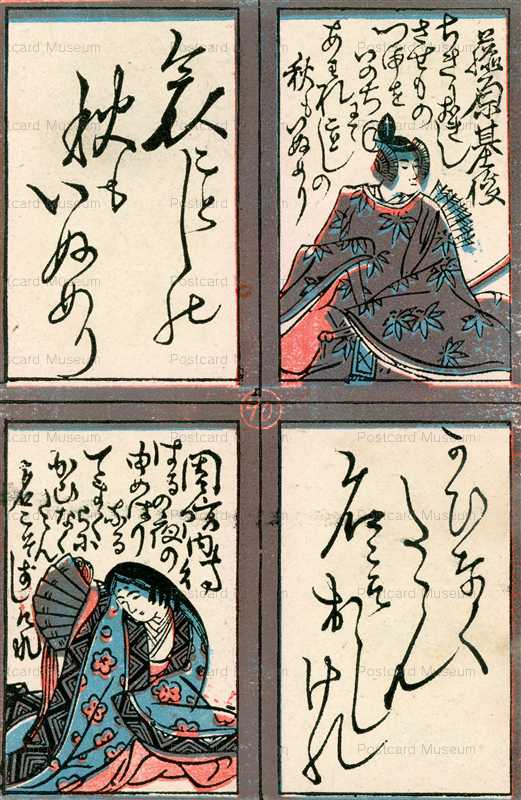 藤原基俊
ちきりおきし
させもの
つゆを
いのち
にて
あわれことしの
秋もいぬめり
哀ことしの
秋も
いぬめり
かひなく
たゝん
名こそ
おしけれ
周防内侍
はるの夜の
ゆめはかり
なる
てまくら
に
かひなく
たゝん
名こそおしけれ
Postcard Museum